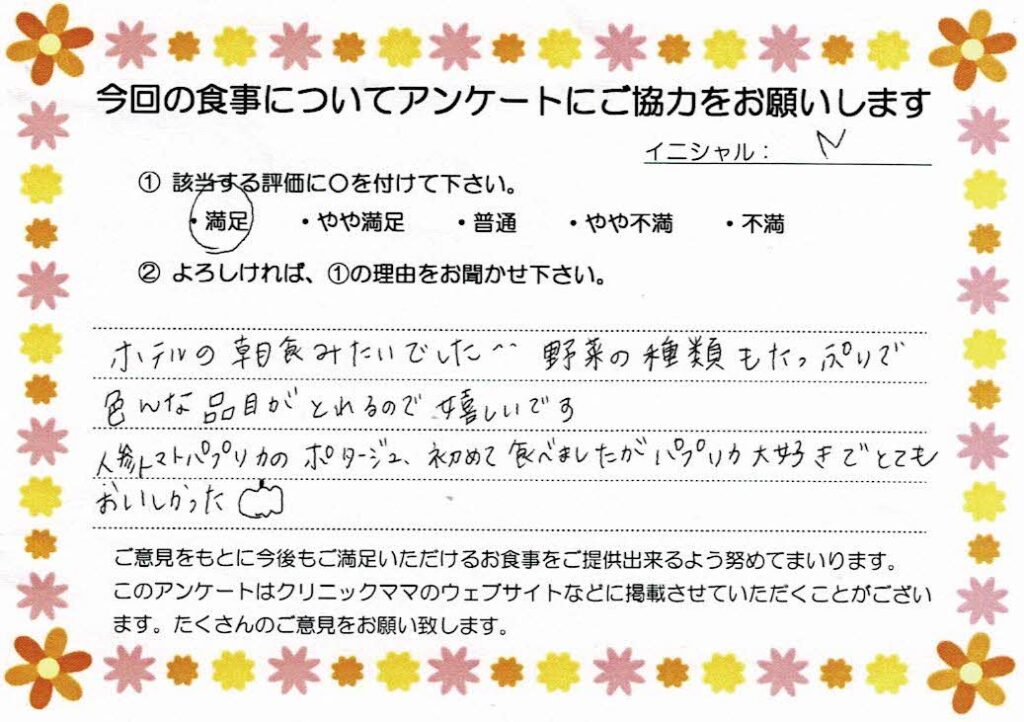 今回の食事についてアンケートにご協力をお願いします
イニシャル： N
① 該当する評価に〇を付けて下さい。
・満足 ・やや満足 ・普通 ・やや不満 ・不満
② よろしければ、①の理由をお聞かせ下さい。
ホテルの朝食みたいでした^^ 野菜の種類もたっぷりで
色んな品目がとれるので嬉しいです
人参トマトパプリカのポタージュ、初めて食べましたがパプリカ大好きでとても
おいしかった
ご意見をもとに今後もご満足いただけるお食事をご提供出来るよう努めてまいります。
このアンケートはクリニックママのウェブサイトなどに掲載させていただくことがござい
ます。たくさんのご意見をお願い致します。